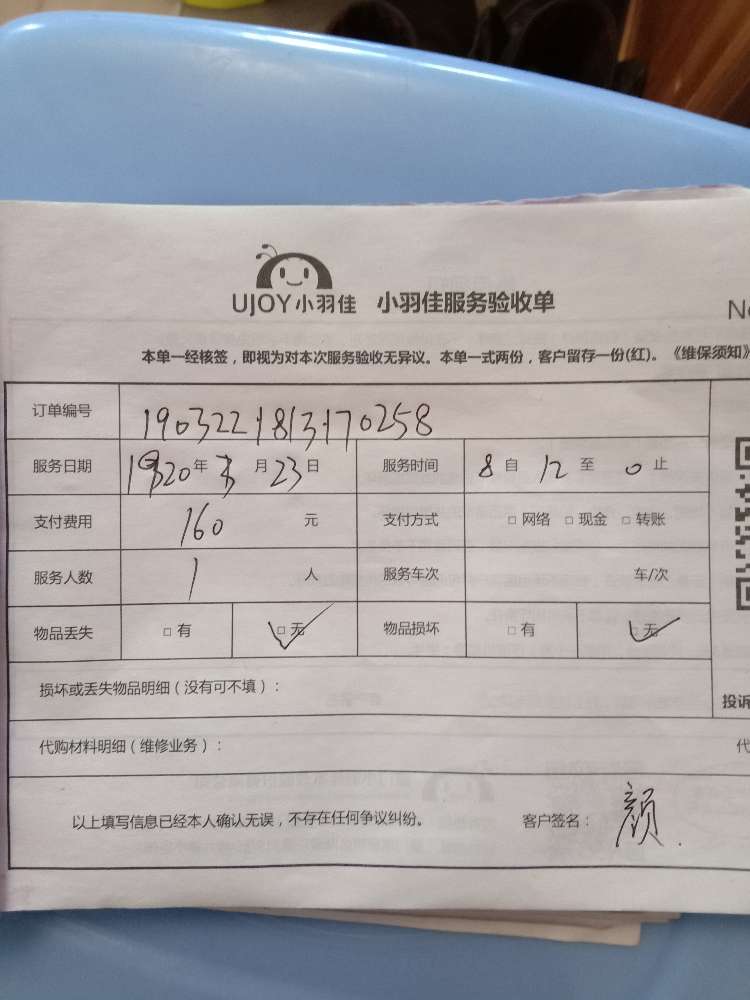 UJOY小羽佳 小羽佳服务验收单
本单一经核签，即视为对本次服务验收无异议。本单一式两份，客户留存一份(红)。《维保须知》
订单编号 190322181370258
服务日期 年 月 23 日 服务时间 8 自 12 至 0 止
支付费用 160 元 支付方式 □ 网络 □ 现金 □ 转账
服务人数 1 人 服务车次 车/次
物品丢失 □ 有 □ 无 物品损坏 □ 有 □ 无
损坏或丢失物品明细（没有可不填）：
投诉
代购材料明细（维修业务）：
代
以上填写信息已经本人确认无误，不存在任何争议纠纷。 客户签名： 颜